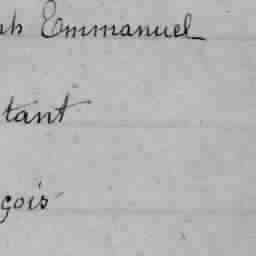 ph Emmanuel
tant
çois